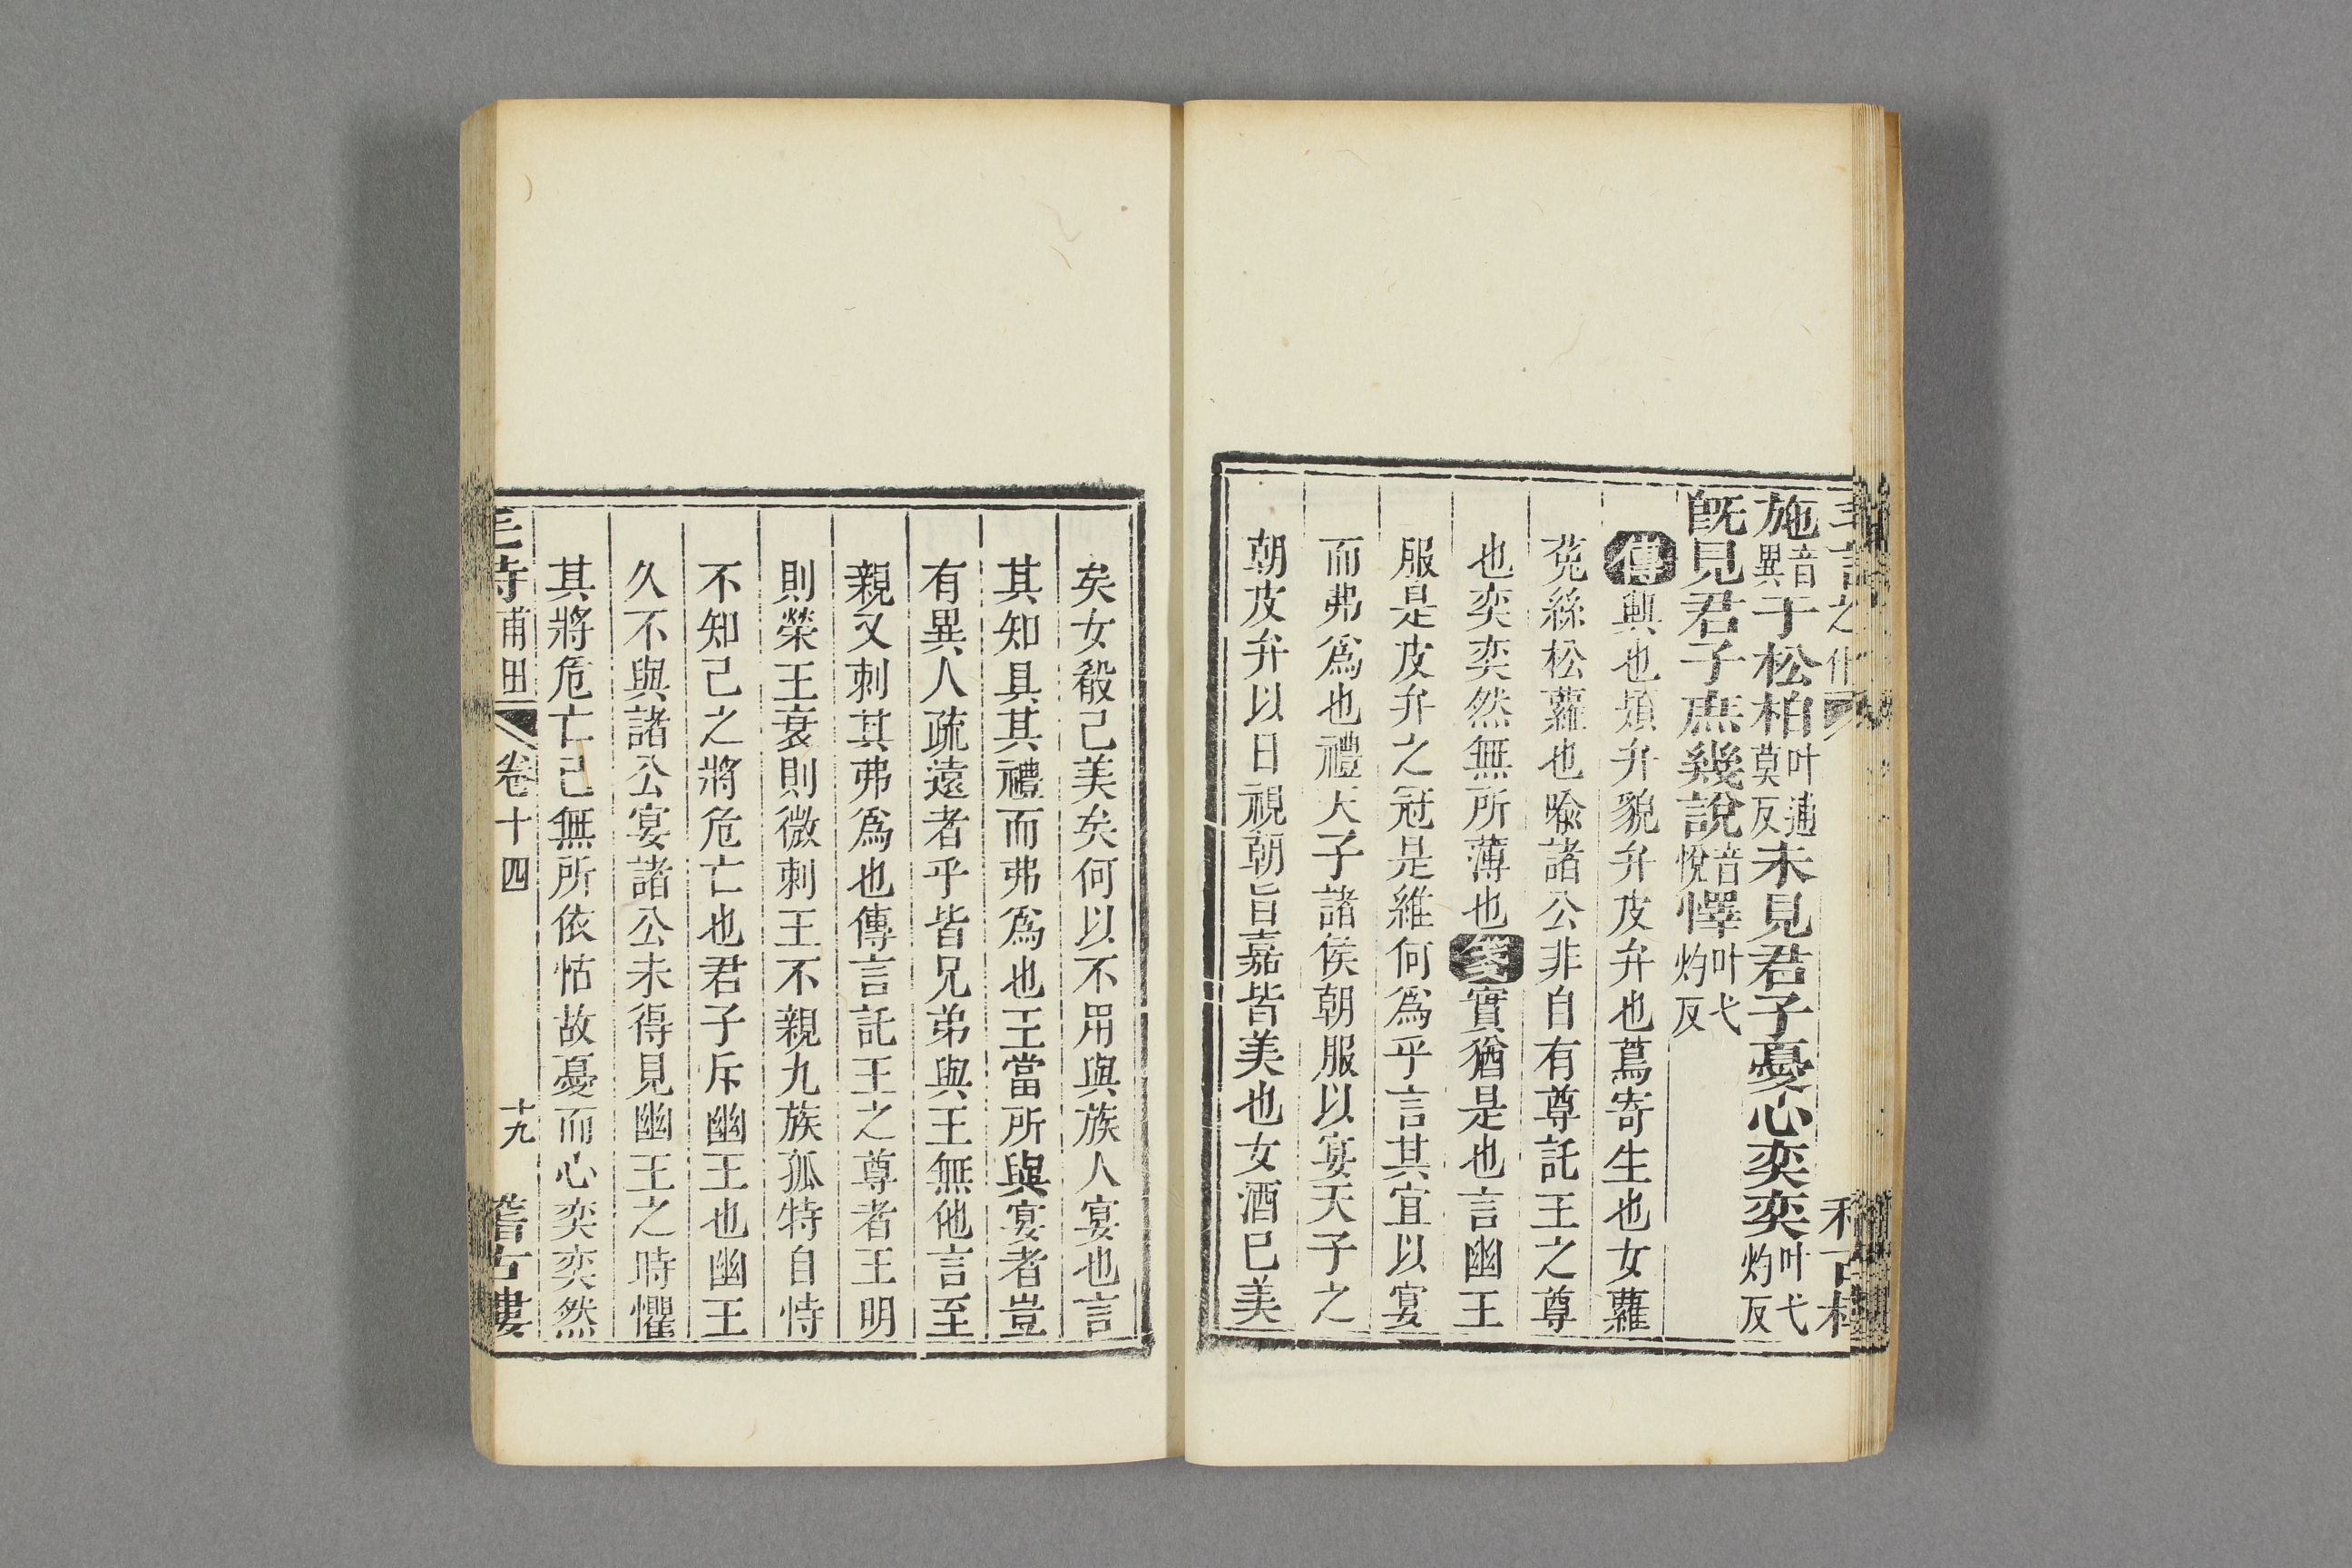 施音異于松柏叶逋莫反未見君子憂心奕奕叶弋灼反
旣見君子庶幾說音悅懌叶弋灼反
傳興也頍弁貌弁皮弁也蔦寄生也女蘿
菟絲松蘿也喩諸公非自有尊託王之尊
也奕奕然無所薄也箋實猶是也言幽王
服是皮弁之冠是維何爲乎言其宜以宴
而弗爲也禮天子諸侯朝服以宴天子之
朝皮弁以日視朝旨嘉皆美也女酒已美
矣女殽已美矣何以不用與族人宴也言
其知具其禮而弗爲也王當所與宴者豈
有異人疏遠者乎皆兄弟與王無他言至
親又刺其弗爲也傳言託王之尊者王明
則榮王衰則微刺王不親九族孤特自恃
不知己之將危亡也君子斥幽王也幽王
久不與諸公宴諸公未得見幽王之時懼
其將危亡己無所依怙故憂而心奕奕然
毛詩甫田 卷十四 十九 稽古樓